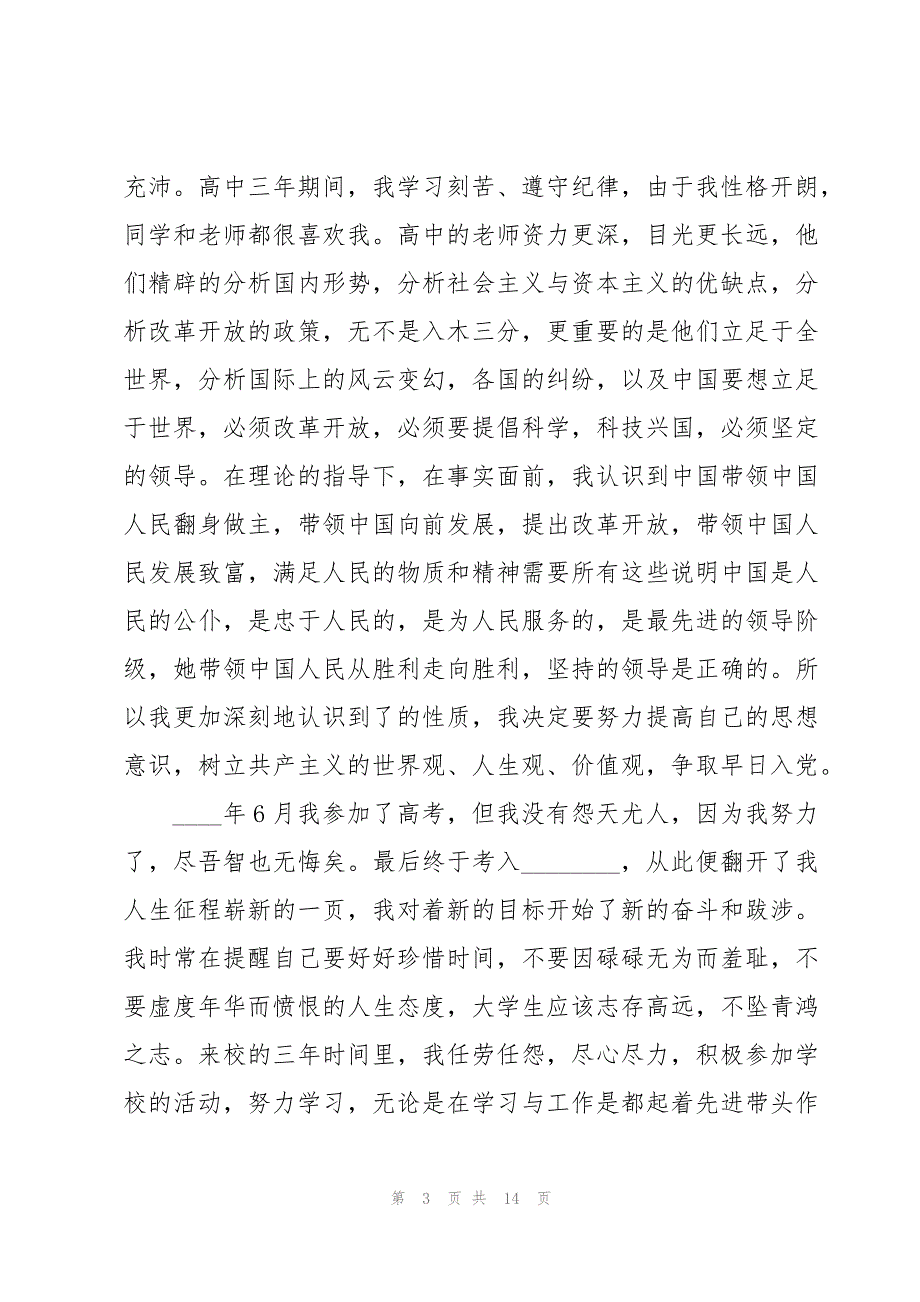 充沛。高中三年期间，我学习刻苦、遵守纪律，由于我性格开朗，
同学和老师都很喜欢我。高中的老师资力更深，目光更长远，他
们精辟的分析国内形势，分析社会主义与资本主义的优缺点，分
析改革开放的政策，无不是入木三分，更重要的是他们立足于全
世界，分析国际上的风云变幻，各国的纠纷，以及中国要想立足
于世界，必须改革开放，必须要提倡科学，科技兴国，必须坚定
的领导。在理论的指导下，在事实面前，我认识到中国带领中国
人民翻身做主，带领中国向前发展，提出改革开放，带领中国人
民发展致富，满足人民的物质和精神需要所有这些说明中国是人
民的公仆，是忠于人民的，是为人民服务的，是最先进的领导阶
级，她带领中国人民从胜利走向胜利，坚持的领导是正确的。所
以我更加深刻地认识到了的性质，我决定要努力提高自己的思想
意识，树立共产主义的世界观、人生观、价值观，争取早日入党。
____年6月我参加了高考，但我没有怨天尤人，因为我努力
了，尽吾智也无悔矣。最后终于考入________，从此便翻开了我
人生征程崭新的一页，我对着新的目标开始了新的奋斗和跋涉。
我时常在提醒自己要好好珍惜时间，不要因碌碌无为而羞耻，不
要虚度年华而愤恨的人生态度，大学生应该志存高远，不坠青鸿
之志。来校的三年时间里，我任劳任怨，尽心尽力，积极参加学
校的活动，努力学习，无论是在学习与工作是都起着先进带头作
第 3 页 共 14 页